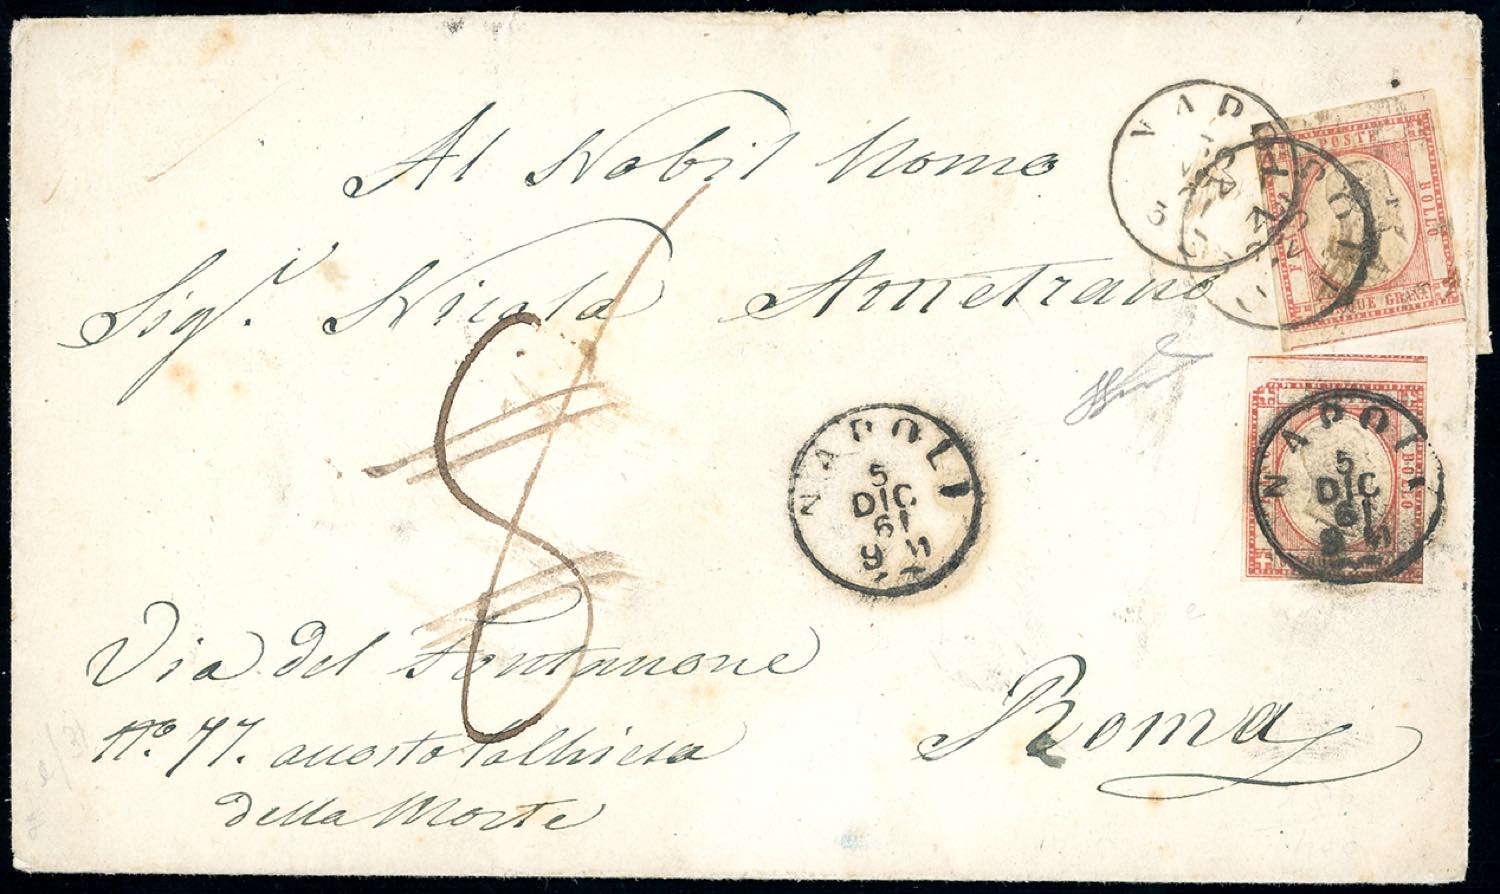 Al Nobil Uomo
Sigr. Nicola Ametrano
8
Via del Fontanone
No. 77. accosto la Chiesa
della Morte
Roma
NAPOLI
5
DIC
61
9 M
NAPOLI
5
DIC
61
9 M
NAPOLI
NAPOLI
POSTE
BOLLO
QUE GRANA
BOLLO